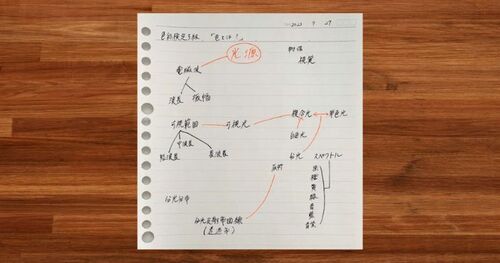 2023 7 27
色彩検定3級、「色とは?」
光源
物体
視覚
電磁波
波長 振幅
可視範囲 可視光 複合光 単色光
白色光
短波長 中波長 長波長
分光 スペクトル
反射
赤
橙
黄
緑
青
藍
青紫
分光分布
分光反射率曲線